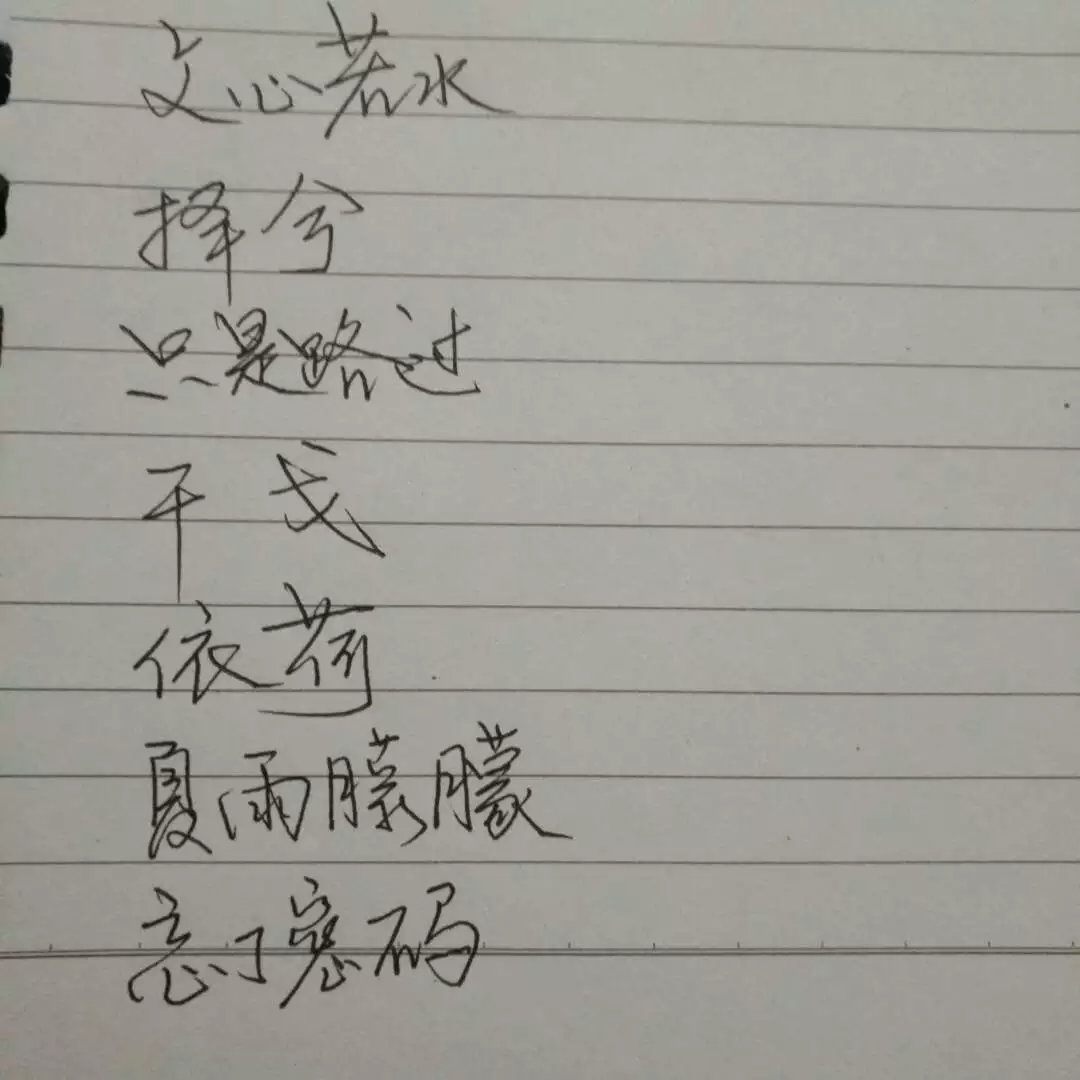 文心若水
择兮
只是路过
干戈
依荷
夏雨朦朦
忘了密码